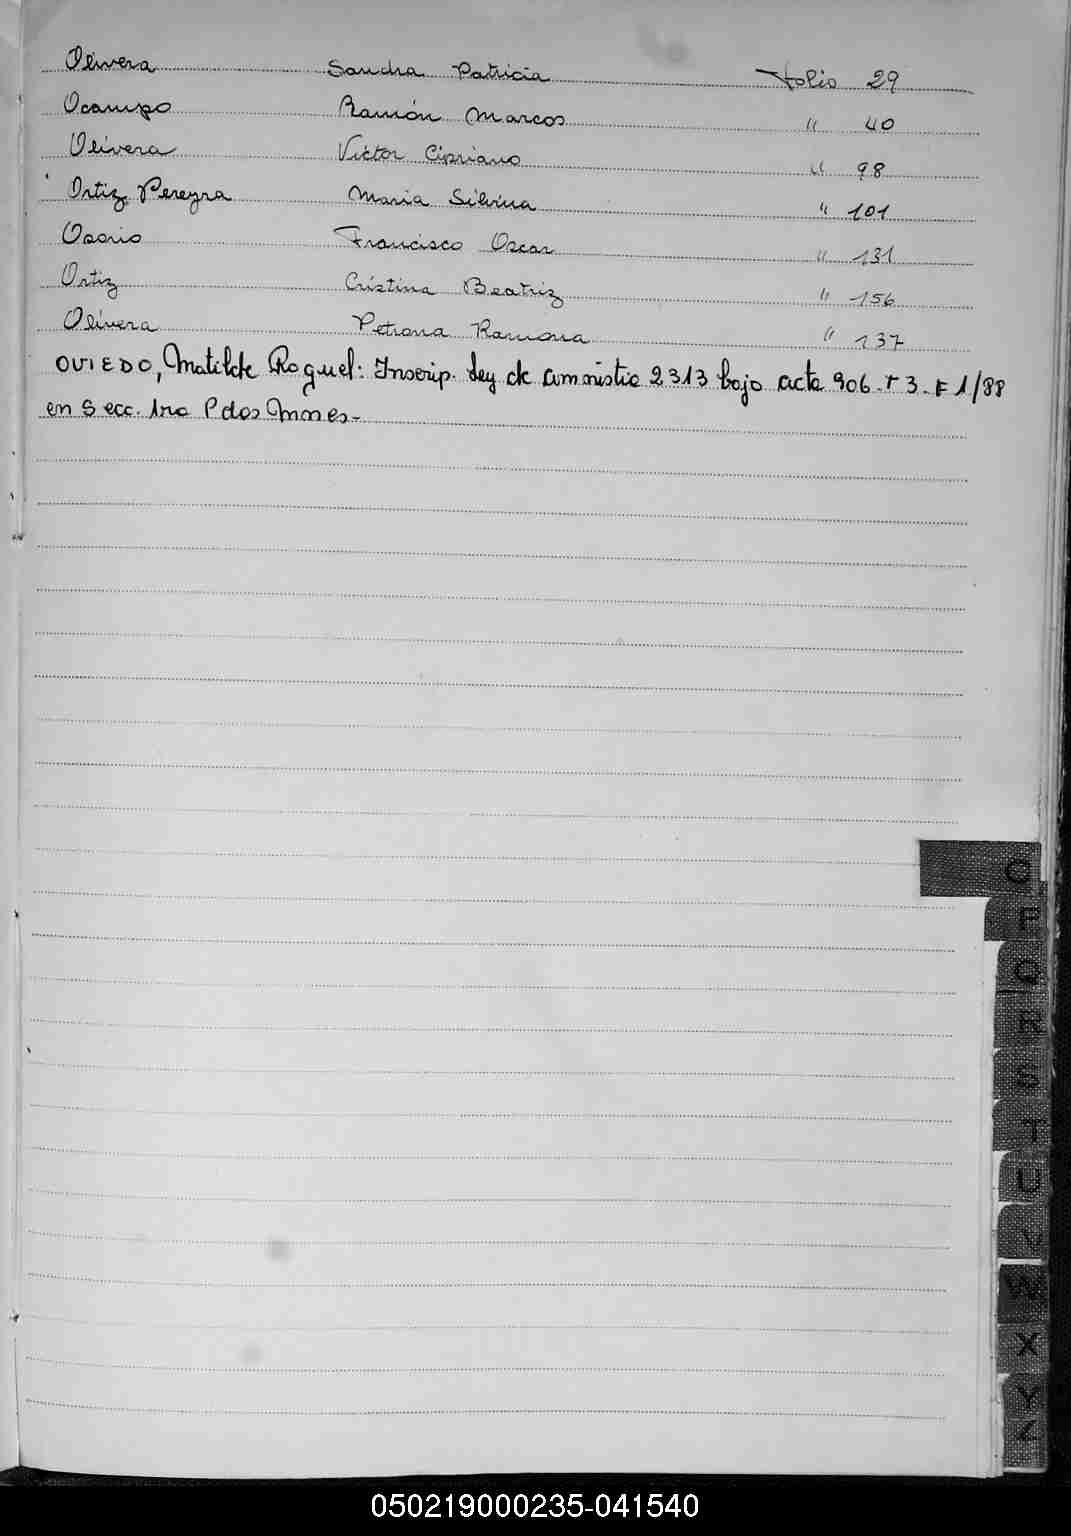 Olivera Sandra Patricia Folio 29
Ocampo Ramón Marcos " 40
Olivera Victor Cipriano " 98
Ortiz Pereyra Maria Silvina " 101
Osorio Francisco Oscar " 131
Ortiz Cristina Beatriz " 156
Olivera Petrona Ramona " 137
OVIEDO, Matilde Raquel: Inscrip. Ley de amnistia 2313 bajo acta 906. T 3. F 1/88
en Secc. 1ra P dos
O
P
Q
R
S
T
U
V
W
X
Y
Z
050219000235-041540